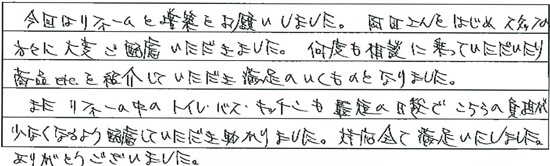 今回はリフォームと増築をお願いしました。 町田さんをはじめ スタッフの
方々に大変ご配慮いただきました。 何度も相談に乗っていただいたり
商品etc.を紹介していただき満足のいくものとなりました。
また リフォーム中のトイレ・バス・キッチンも 最短の日程で こちらの負担が
少なくなるよう配慮していただき助かりました。 対応全て満足いたしました。
ありがとうございました。